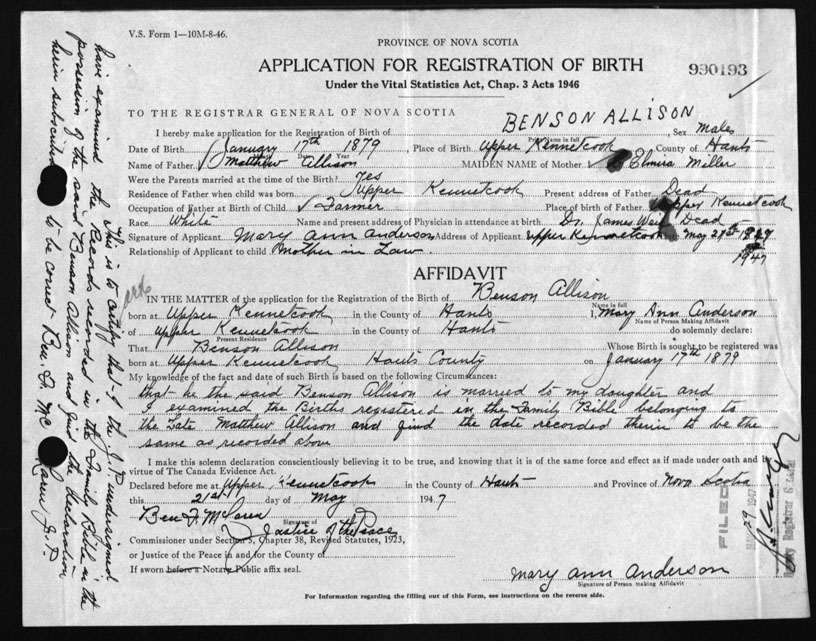 V.S. Form 1—10M-8-46.
PROVINCE OF NOVA SCOTIA
APPLICATION FOR REGISTRATION OF BIRTH
990193
Under the Vital Statistics Act, Chap. 3 Acts 1946
TO THE REGISTRAR GENERAL OF NOVA SCOTIA
I hereby make application for the Registration of Birth of BENSON ALLISON, Sex Males
Print Name in full
Date of Birth January 17th 1879, Place of Birth Upper Kennetcook County of Hants
Date Year
Name of Father Matthew Allison MAIDEN NAME of Mother Elmira Miller
Were the Parents married at the time of the Birth? Yes
Residence of Father when child was born Upper Kennetcook Present address of Father Dead
Occupation of Father at Birth of Child Farmer Place of birth of Father Upper Kennetcook
Race White Name and present address of Physician in attendance at birth Dr. James Dead
Signature of Applicant Mary Ann Anderson Address of Applicant Upper Kennetcook May 21st
1947
Relationship of Applicant to child Mother in Law
AFFIDAVIT
IN THE MATTER of the application for the Registration of the Birth of Benson Allison
Name in full
born at Upper Kennetcook in the County of Hants I, Mary Ann Anderson
Name of Person Making Affidavit
of Upper Kennetcook in the County of Hants do solemnly declare:
Present Residence
That Benson Allison Whose Birth is sought to be registered was
born at Upper Kennetcook Hants County on January 17th 1879
My knowledge of the fact and date of such Birth is based on the following Circumstances:
that he the said Benson Allison is married to my daughter and
I examined the Births registered in the Family Bible belonging to
the Late Matthew Allison and find the date recorded therin to be the
same as recorded above
I make this solemn declaration conscientiously believing it to be true, and knowing that it is of the same force and effect as if made under oath and by
virtue of The Canada Evidence Act.
Declared before me at Upper Kennetcook in the County of Hants and Province of Nova Scotia
this 21st day of May 1947
Ben F. McLearn
Signature of
Justice of the Peace
Commissioner under Section 5, Chapter 38, Revised Statutes, 1923,
or Justice of the Peace in and for the County of
If sworn before a Notary Public affix seal.
Mary Ann Anderson
Signature of Person making Affidavit
For Information regarding the filling out of this Form, see instructions on the reverse side.
This is to certify that I the J.P. undersigned
have examined the Records recorded in the Family Bible in the
possession of the said Benson Allison and find the declaration
herin to be correct Ben F. McLearn J.P.
FILED
1947
Deputy Registrar General